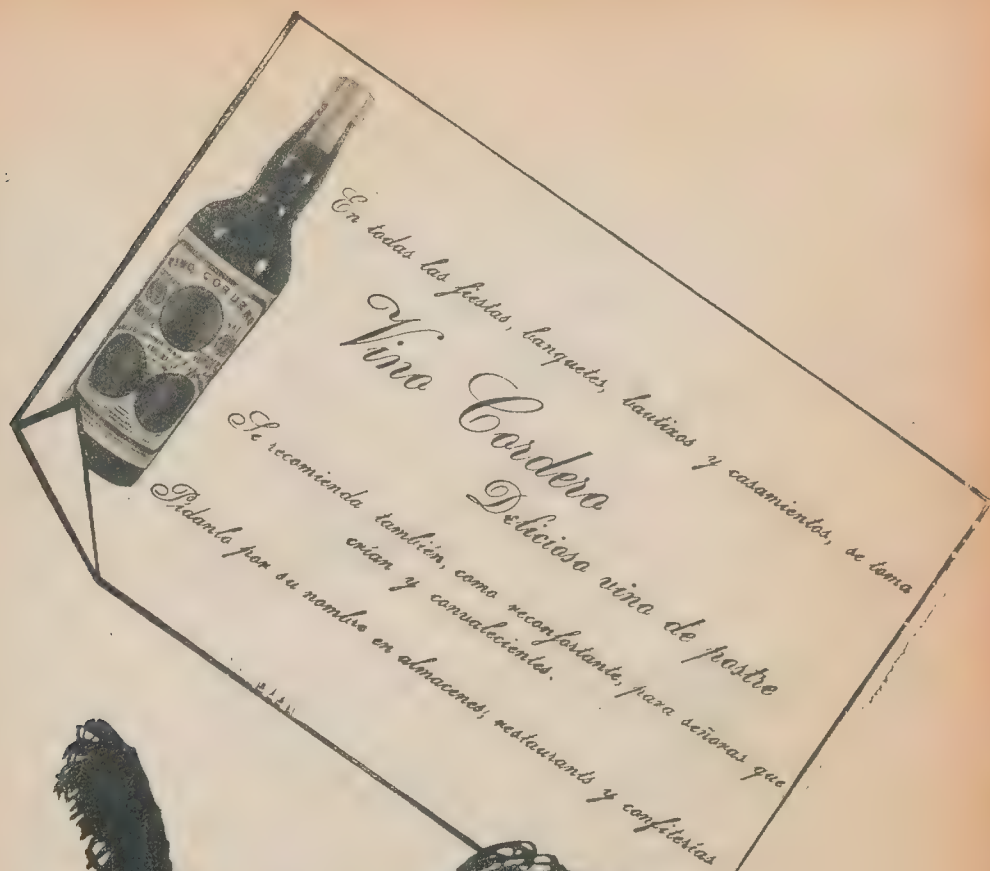 VINO CORDERO
En todas las fiestas, banquetes, bautizos y casamientos, se toma
Vino Cordero
Delicioso vino de postre
Se recomienda también, como reconfortante, para señoras que
crían y convalecientes.
Pídanlo por su nombre en almacenes, restaurants y confiterías